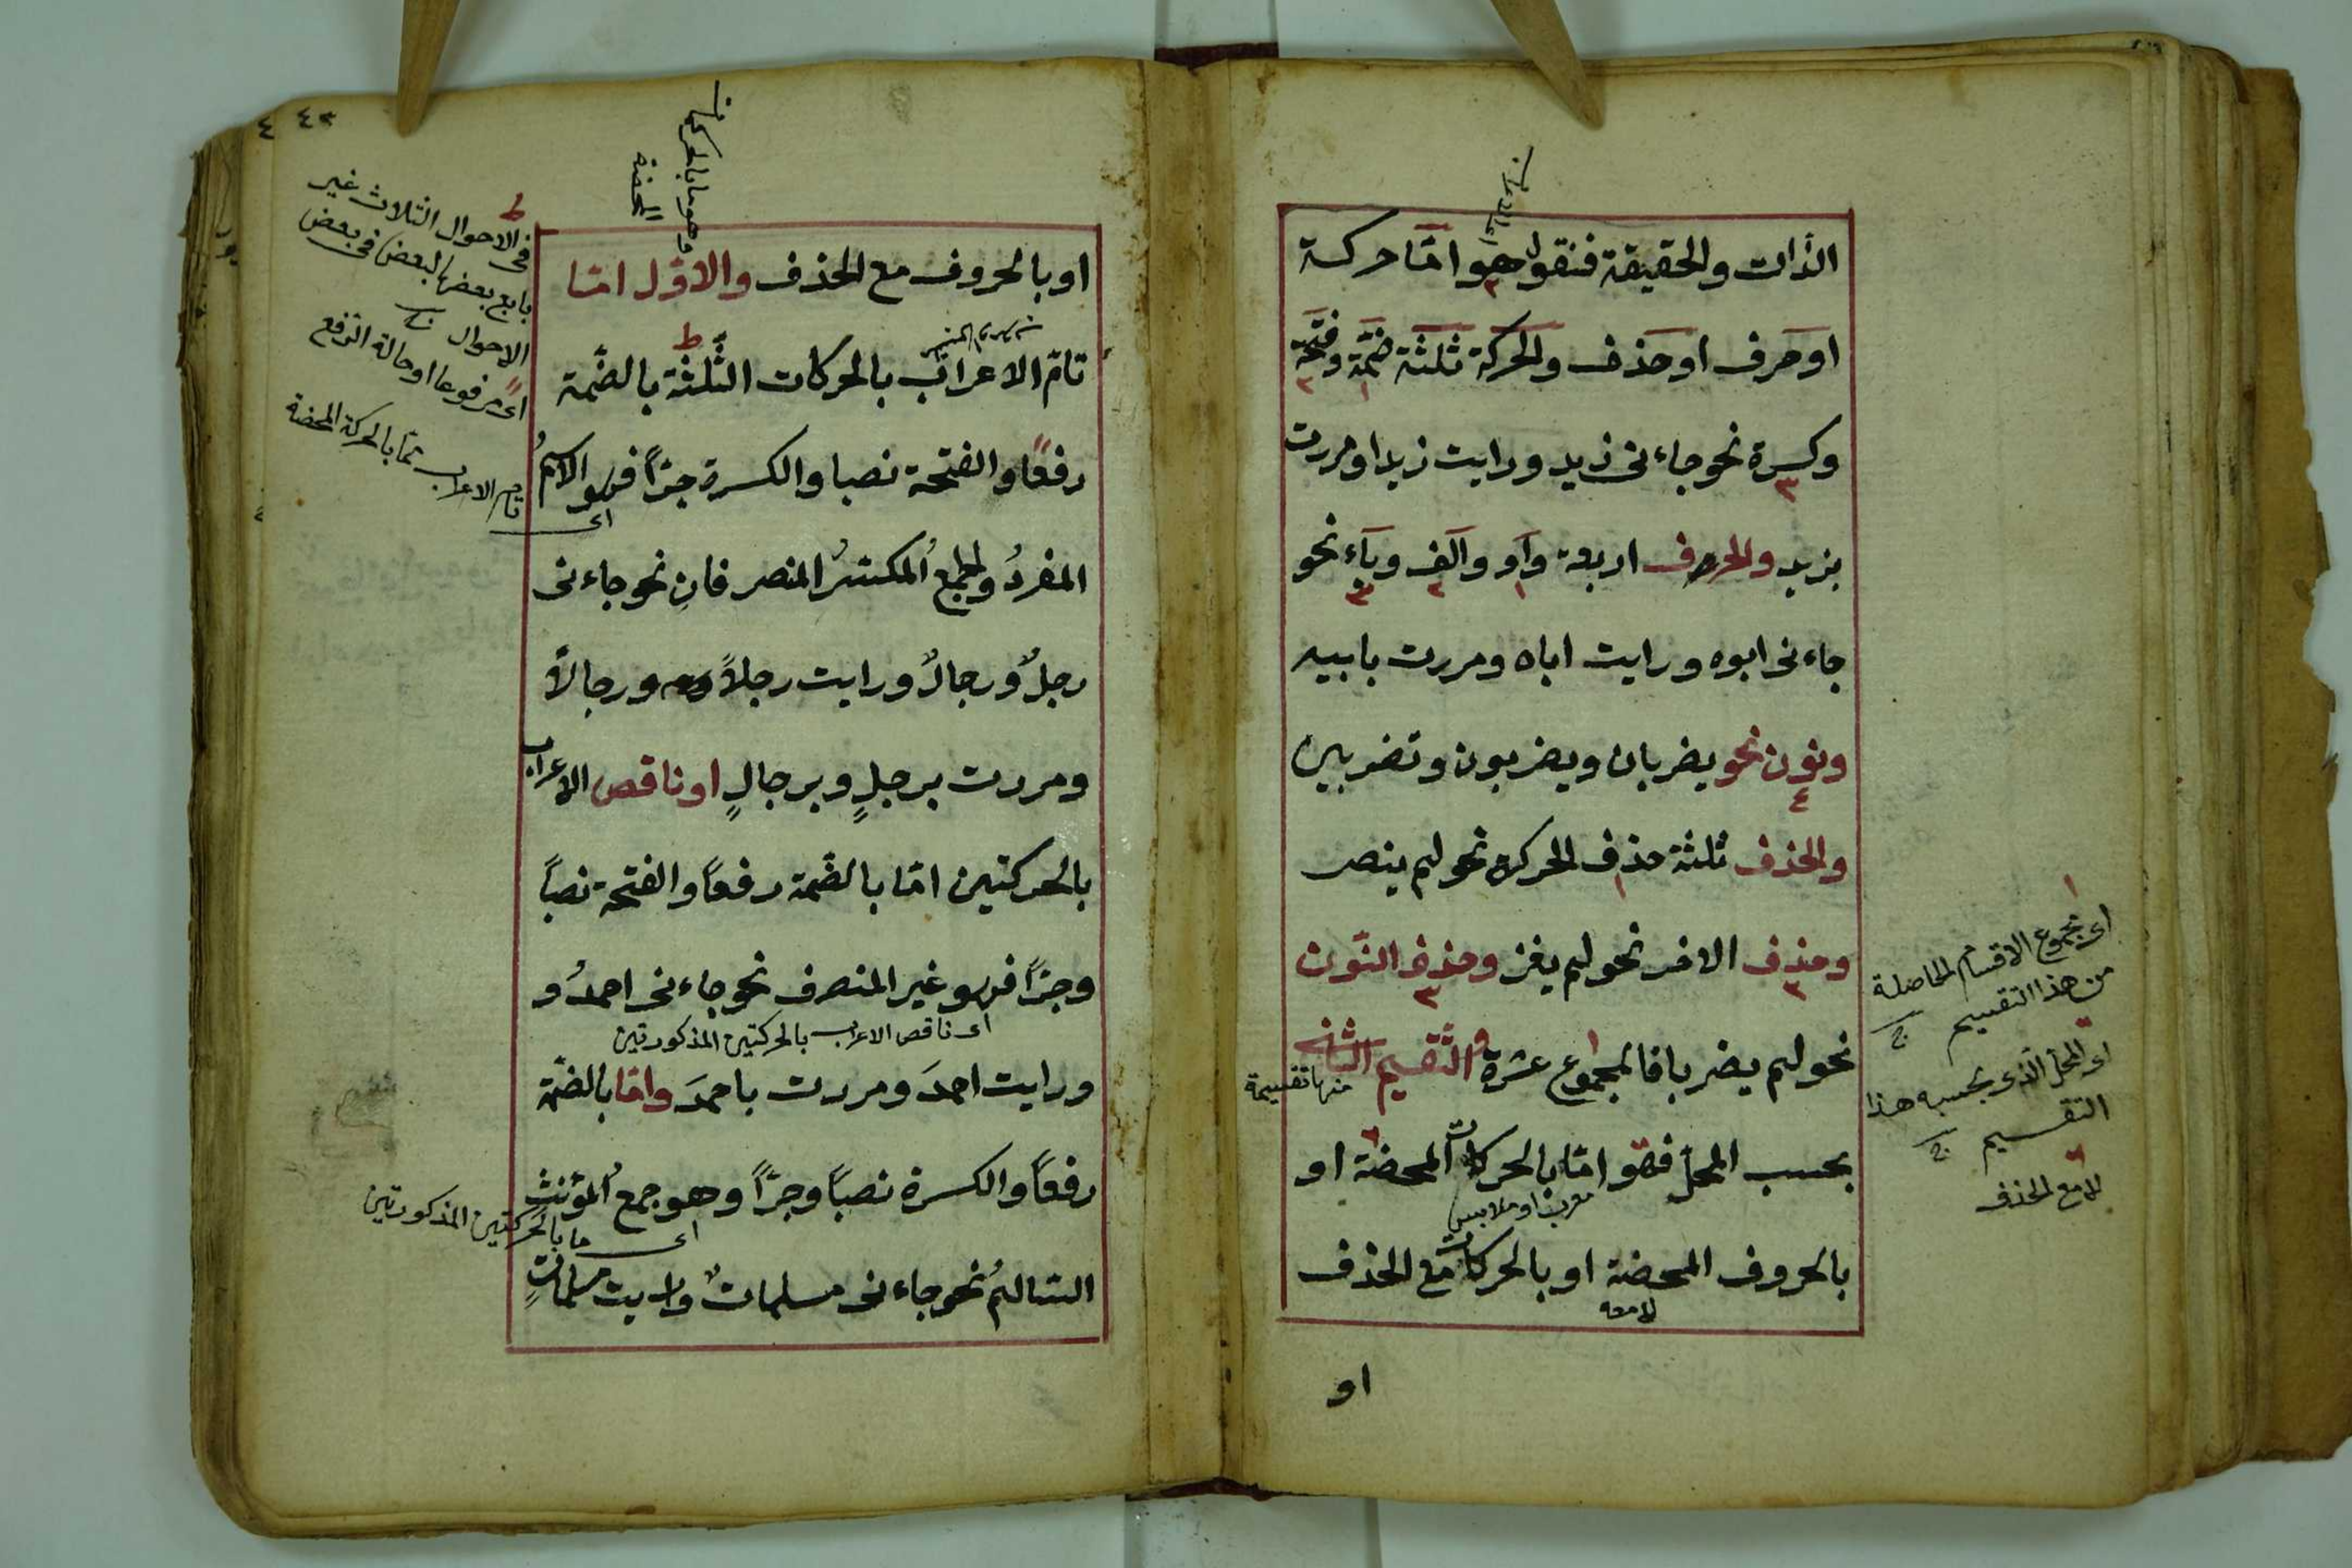 الذات والحقيقة فنقول هو امّا حركة
او حرف او حذف والحركة ثلثة ضمّة وفتحة
وكسرة نحو جاءنى زيد ورايت زيدا ومررت
بزيد والحرف اربعة واو والف وياء نحو
جاءنى ابوه ورايت اباه ومررت بابيه
ونون نحو يضربان ويضربون وتضربين
والحذف ثلثة حذف الحركة نحو لم ينصر
وحذف الاخر نحو لم يغز وحذف النّون
نحو لم يضربا فالمجموع عشرة والتّقسيم الثانى
بحسب المحلّ فهو امّا بالحركات المحضة او
بالحروف المحضة او بالحركات مع الحذف
او
اى مجموع الاقسام الحاصلة
من هذا التقسيم
اى المحلّ الّذى بحسبه هذا
التقسيم
لا مع الحذف
او بالحروف مع الحذف والاوّل امّا
تامّ الاعراب بالحركات الثّلثة بالضّمة
رفعًا والفتحة نصبا والكسرة جرّاً فهو الاسمُ
المفردُ والجمعُ المكسّرُ المنصرفانِ نحو جاءنى
رجلٌ ورجالٌ ورايت رجلاً ورجالاً
ومررت برجلٍ وبرجالٍ او ناقص الاعراب
بالحركتين امّا بالضّمة رفعاً والفتحة نصباً
وجرّاً فهو غير المنصرف نحو جاءنى احمدُ و
اى ناقص الاعراب بالحركتين المذكورتين
ورايت احمدَ ومررت باحمدَ وامّا بالضّمّة
رفعاً والكسرة نصباً وجرّاً وهو جمعُ المؤنث
اى ما بالحركتين المذكورتين
السّالمُ نحو جاءنى مسلماتٌ ورايت مسلماتٍ
٤٣
فى الاحوال الثلاث غير
بعضها لبعض فى بعض
الاحوال
اى مرفوعا او حالة الرّفع
اى تام الاعراب بالحركة المحضة